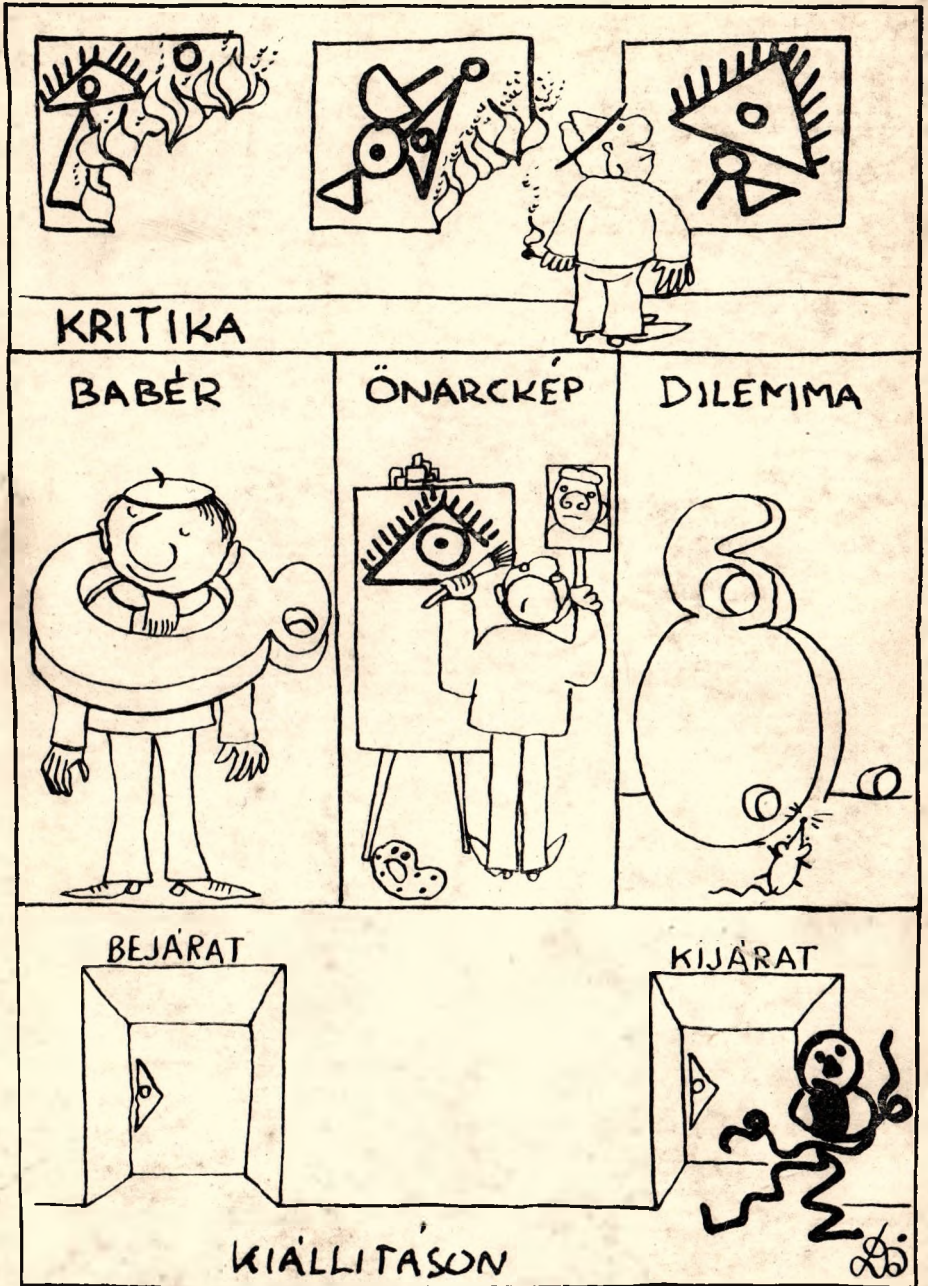 KRITIKA
BABÉR
ÖNARCKÉP
DILEMMA
BEJÁRAT
KIJÁRAT
KIÁLLITÁSON